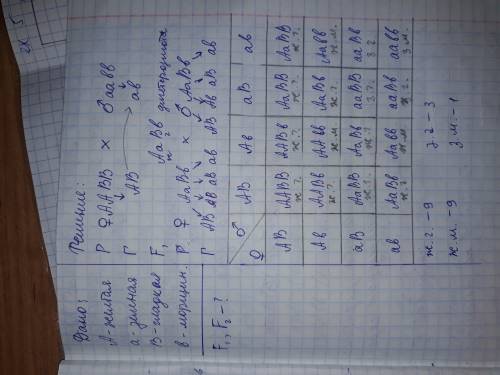 Дано:
А-желтая
а-зеленая
В-гладкая
в-морщин.
F₁, F₂ - ?
Решение:
P ♀ААВВ × ♂аавв
Г АВ ав
F₁ АаВв дигетерозигота
ж г
P. ♀ АаВв × ♂ АаВв
Г АВ Ав аВ ав АВ Ав аВ ав
♂ АВ Ав аВ ав
♀
АВ ААВВ ж.г. ААВв ж.г. АаВВ ж.г. АаВв ж.г.
Ав ААВв ж.г. ААвв ж.м АаВв ж.г. Аавв ж.м.
аВ АаВВ ж.г. АаВв ж.г. ааВВ з.г. ааВв з.г
ав АаВв ж.г. Аавв ж.м ааВв аавв з.м.
ж.г. -9 з.г -3
ж.м. -9 з.м. -1